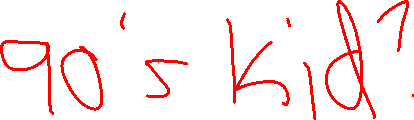 90's kid?